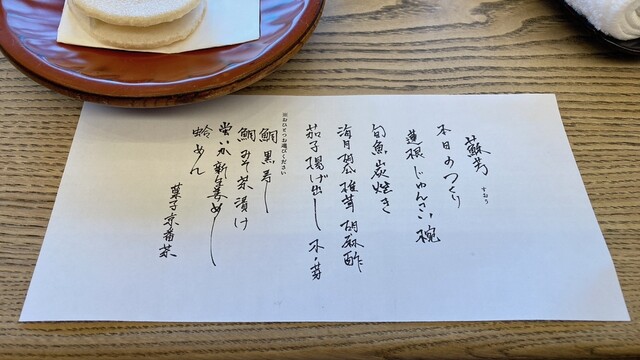 蘇芳
すおう
本日のつくり
蓮根じゅんさい椀
旬魚炭焼き
海月胡瓜椎茸胡麻酢
茄子揚げ出し 木ノ芽
※おひとつお選びください
鯛黒寿し
鯛みそ茶漬け
蛍いか新生姜めし
蛤めん
菓子 京番茶